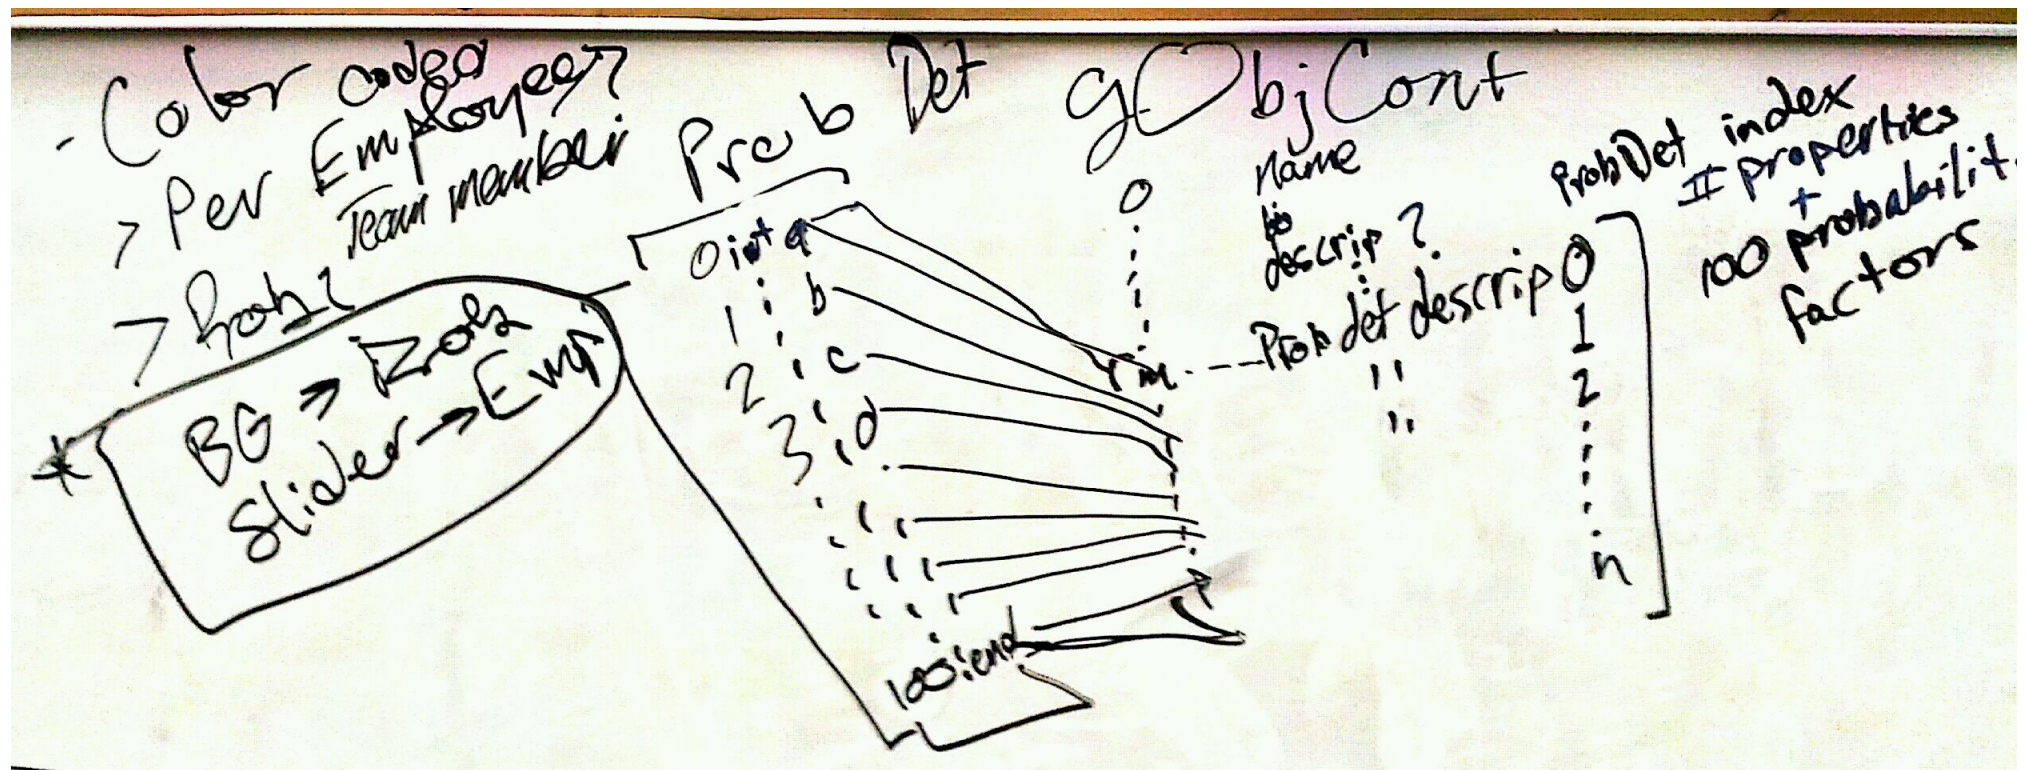 - Color codes
> Per Employee?
Team member
> Rob?
* BG → Rob
Slider → Emp
Prob Det
0 int a
1 b
2 c
3 d
100 end
gObjCont
0
m
name
descrip ?
Prob det descrip 0
" 1
" 2
n
ProbDet index
II properties
+
100 probabilit
factors